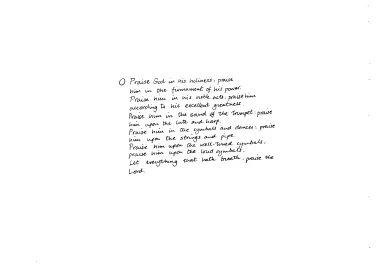 O Praise God in his holiness: praise
him in the firmament of his power.
Praise him in his noble acts: praise him
according to his excellent greatness.
Praise him in the sound of the Trumpet: praise
him upon the lute and harp.
Praise him in the cymbals and dances: praise
him upon the strings and pipe.
Praise him upon the well-tuned cymbals,
praise him upon the loud cymbals.
Let everything that hath breath: praise the
Lord.